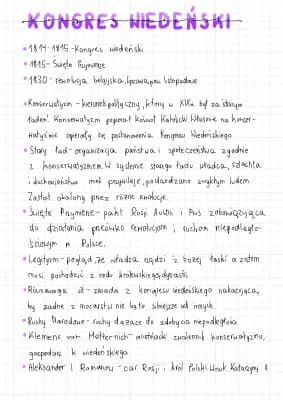 KONGRES WIEDEŃSKI
• 1814-1815 - Kongres wiedeński
• 1815 - Święte Przymierze
• 1830 - rewolucja belgijska, lipcowa, pow. listopadowe
• Konserwatyzm - kierunek polityczny, który w XIXw. był za starym
ładem. Konserwatyzm popierał kościół Katolicki. Właśnie na konser-
watyzmie opierały się postanowienia Kongresu Wiedeńskiego
• Stary ład - organizacja państwa i społeczeństwa zgodnie
z konserwatyzmem. W systemie starego ładu władca, szlachta
i duchowieństwo mieli przywileje, pogardzano zwykłym ludem.
Został obalony przez różne rewolucje.
• Święte Przymierze - pakt Rosji, Austrii i Prus zobowiązująca
do działania przeciwko rewolucjom i ruchom niepodległo-
ściowym w Polsce.
• Legityzm - pogląd, że władca rządzi z bożej łaski a zatem
musi pochodzić z rodu królewskiego, dynastii
• Równowaga sił - zasada z kongresu wiedeńskiego nakazująca,
by żadne z mocarstw nie było silniejsze od innych.
• Ruchy Narodowe - ruchy dążące do zdobycia niepodległości
• Klemens von Metternich - austriacki zwolennik konserwatyzmu,
gospodarz k. wiedeńskiego
• Aleksander I Romanow - car Rosji i król Polski. Wnuk Katarzyny II